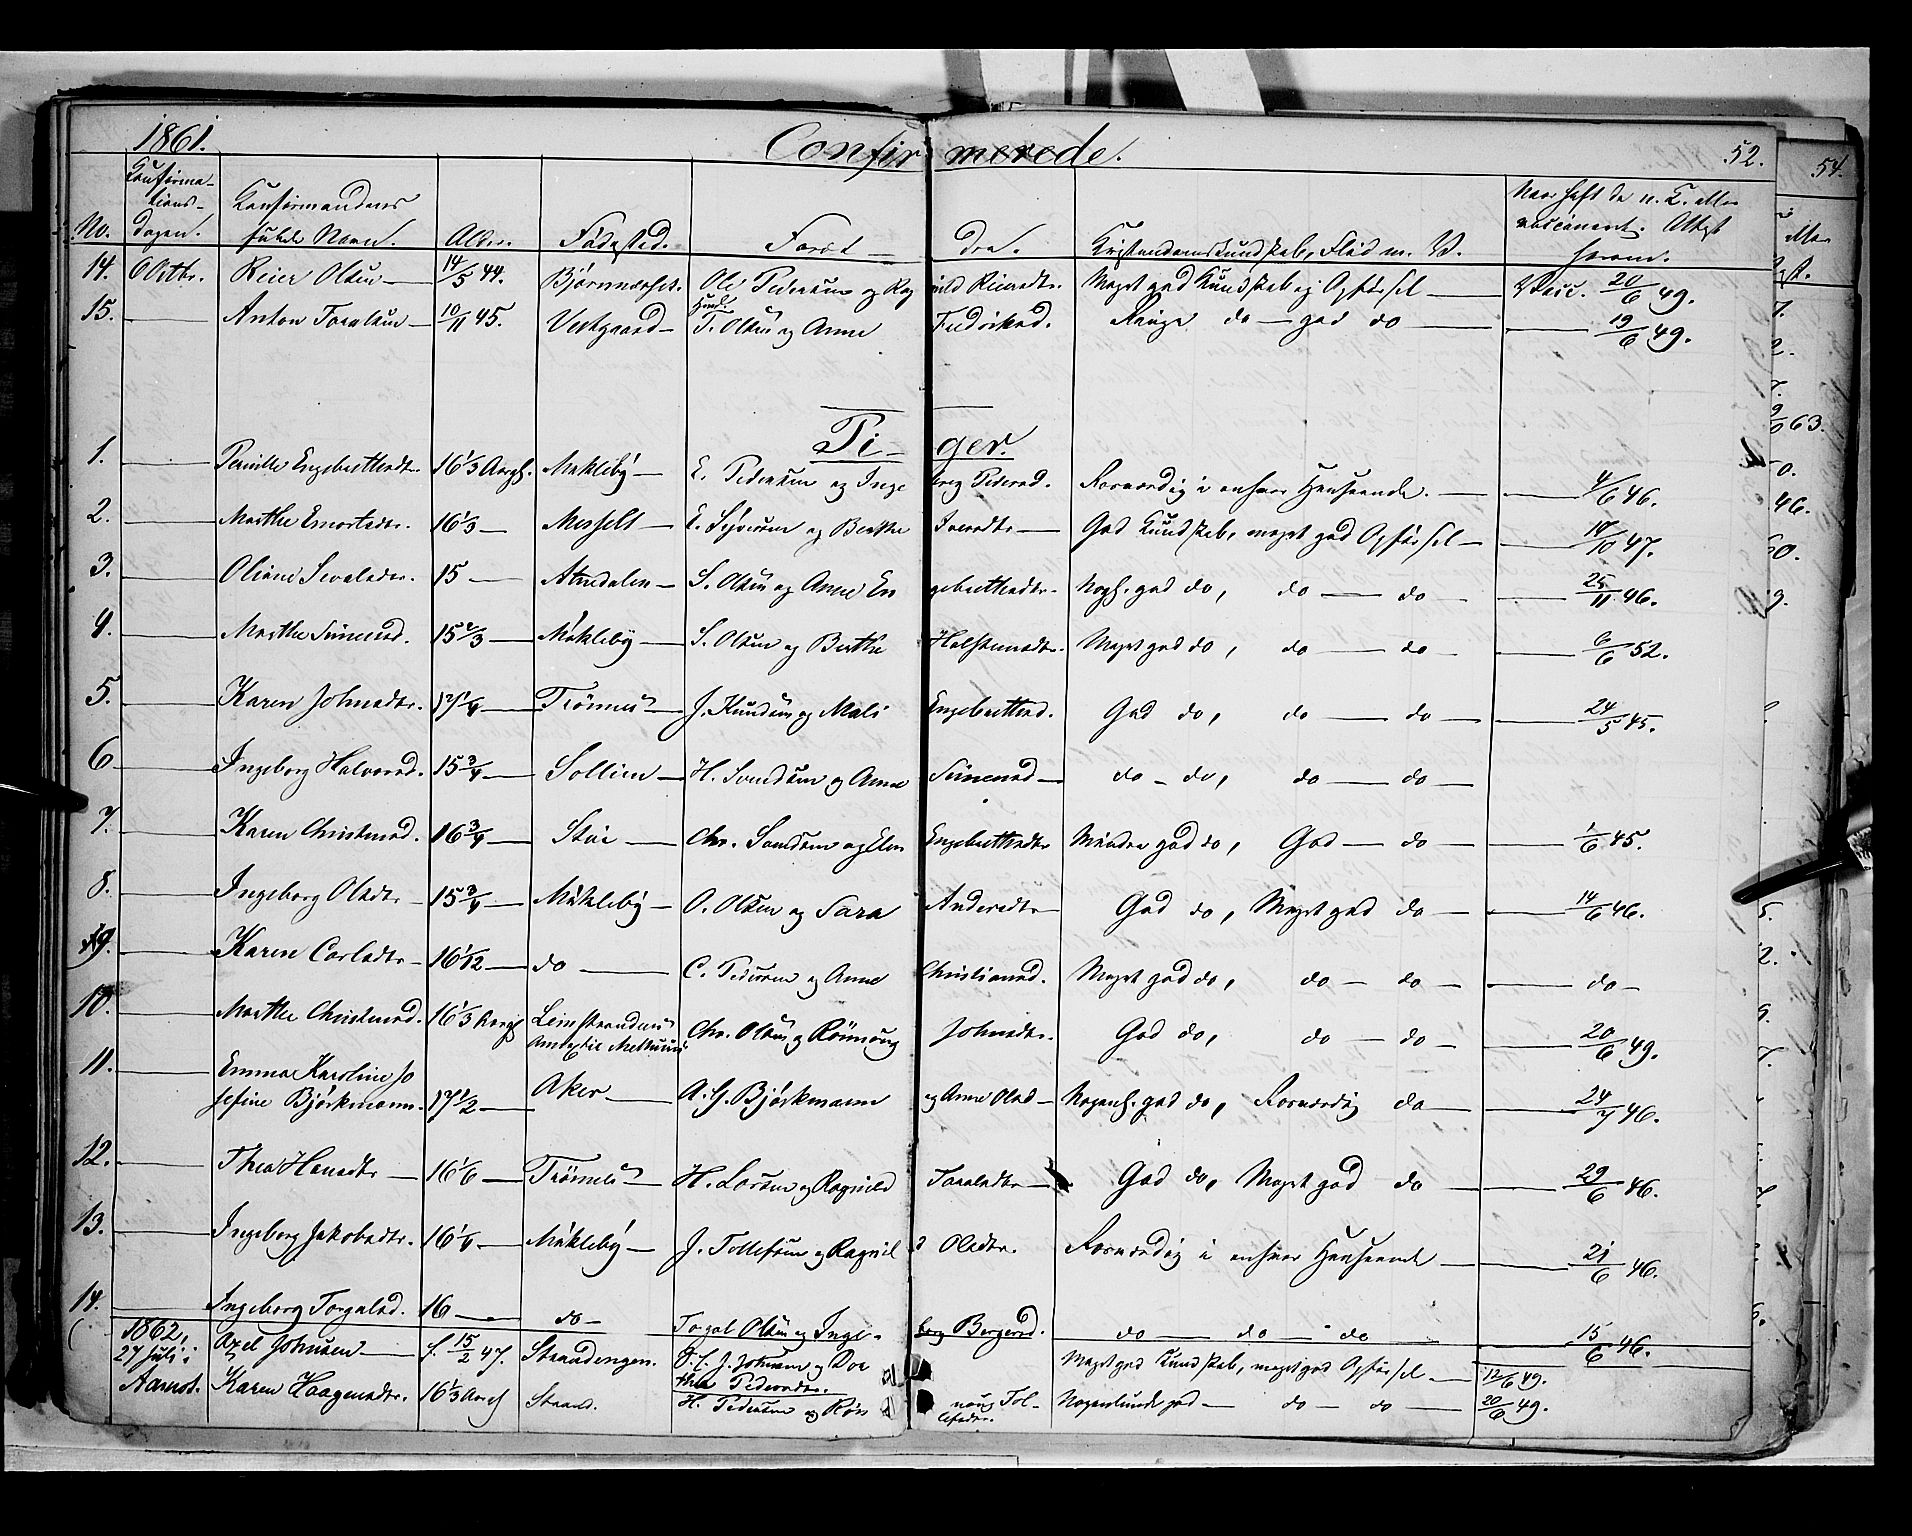 1861. Confirmerede. 52.
No. Konfirmations-dagen. Konfirmandens fulde Navn. Alder. Fødested. Forældre. Kristendomskundskab, Flid m. V. Naar haft de n. K. eller vaccineret. Attest herom.
14. Octbr. Reier Olsen 14/5 44. Bjørnnæsset. Ole Pedersen og Ragnild Reiersdtr. Meget god Kundskab og Opførsel Vacc. 20/6 49.
15. Anton Foralsen 10/11 45. Vestgaard T. Olsen og Anne Fredriksd. Ringe do god do 19/6 49.
Piger.
1. Pernille Engebrettsdtr. 16 1/3 Aargl. Møklebÿ E. Pedersen og Ingeborg Pedersd. Rosværdig i enhver Henseende. 4/6 46.
2. Marthe Emertsdtr. 16 1/3 Messelt E. Syversen og Berthe Iversdtr God Kundskab, meget god Opførsel 14/10 47.
3. Oliane Sevalsdtr. 15 Atnedalen S. Olsen og Anne Engebrettsdtr. Nogl. god do, do do 25/11 46.
4. Marthe Simensd. 15 2/3 Møklebÿ S. Olsen og Berthe Halstensdtr. Meget god do, do do 6/6 52.
5. Karen Johnsdtr. 17 1/4 Trønnes J. Knudsen og Mali Engebrettsd. God do, do do 24/5 45.
6 Ingeborg Halvorsd. 15 3/4 Sollien H. Svendsen og Anne Simensd do do, do do
7. Karen Christensd. 16 3/4 Stai Chr. Svendsen og Elen Engebrettsdtr Mindre god do, God do 1/6 45.
8. Ingeborg Olsdtr 15 3/4 Møklebÿ O. Olsen og Sara Andersdtr God do, Meget god do 14/6 46.
9. Karen Carlsdtr 16 1/12 do C. Pedersen og Anne Christiansd. Meget god do, do do do
10. Marthe Christensd. 16 1/3 Aargl Leinstrandens Chr. Olsen og Rønnoug Johnsdtr. God do, do do 20/6 49.
11. Emma Karoline Josefine Bjørkmann. 17 1/2 Aker A. G. Bjørkmann og Anne Olsd Nogenl. god do, Rosværdig do 24/7 46.
12. Thea Hansdtr 16 1/6 Trønnes H. Larsen og Ragnild Foralsdtr God do, Meget god do 29/6 46.
13. Ingeborg Jakobsdtr. 16 1/4 Møklebÿ J. Tollefsen og Ragnild Olsdtr. Rosværdig i enhver Henseende 21/6 46.
14. Ingeborg Torgalsd. 16 do Torgal Olsen og Ingeborg Bergersd. do do do 15/6 46.
1862, 27 Juli i Aamot. Axel Johnsen f. 15/2 47. Strandengen. J. Johnsen og Dorthea Pedersdtr. Meget god Kundskab, meget god Opførsel 12/6 49.
Karen Haagensdtr. 16 1/3 Aargl Strand. H. Pedersen og Rønnoug Tollefsdtr. Nogenlunde god do do 20/6 49.
54.